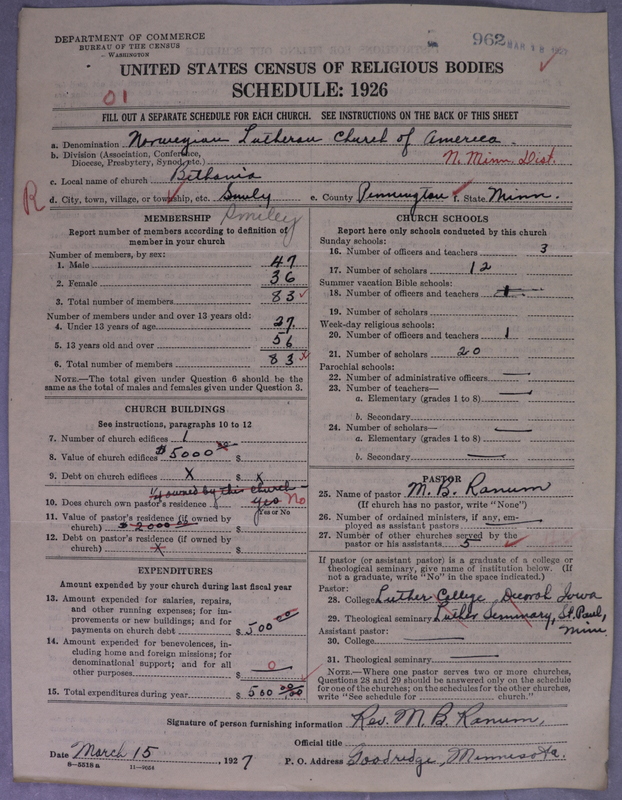 DEPARTMENT OF COMMERCE
BUREAU OF THE CENSUS
WASHINGTON
962 MAR 18
UNITED STATES CENSUS OF RELIGIOUS BODIES
SCHEDULE: 1926
01
FILL OUT A SEPARATE SCHEDULE FOR EACH CHURCH. SEE INSTRUCTIONS ON THE BACK OF THIS SHEET
a. Denomination Norwegian Lutheran Church of America
b. Division (Association, Conference, Diocese, Presbytery, Synod, etc.) N. Minn. Dist.
c. Local name of church Bethania
R d. City, town, village, or township, etc. Smily e. County Pennington f. State Minn.
Smiley
MEMBERSHIP
Report number of members according to definition of member in your church
Number of members, by sex:
1. Male 47
2. Female 36
3. Total number of members 83
Number of members under and over 13 years old:
4. Under 13 years of age 27
5. 13 years old and over 56
6. Total number of members 83
NOTE.—The total given under Question 6 should be the
same as the total of males and females given under Question 3.
CHURCH BUILDINGS
See instructions, paragraphs 10 to 12
7. Number of church edifices 1
8. Value of church edifices $5000 00 $
9. Debt on church edifices X $ X
1/4 owned by this church
10. Does church own pastor's residence? yes No
Yes or No
11. Value of pastor's residence (if owned by
church) $2000 00 $
12. Debt on pastor's residence (if owned by
church) X $
EXPENDITURES
Amount expended by your church during last fiscal year
13. Amount expended for salaries, repairs,
and other running expenses; for im-
provements or new buildings; and for
payments on church debt $ 500 00
14. Amount expended for benevolences, in-
cluding home and foreign missions; for
denominational support; and for all
other purposes 0
15. Total expenditures during year $ 500 00
CHURCH SCHOOLS
Report here only schools conducted by this church
Sunday schools:
16. Number of officers and teachers 3
17. Number of scholars 12
Summer vacation Bible schools:
18. Number of officers and teachers 1
19. Number of scholars
Week-day religious schools:
20. Number of officers and teachers 1
21. Number of scholars 20
Parochial schools:
22. Number of administrative officers —
23. Number of teachers—
a. Elementary (grades 1 to 8) —
b. Secondary
24. Number of scholars—
a. Elementary (grades 1 to 8) —
b. Secondary —
PASTOR
25. Name of pastor M. B. Ranum
(If church has no pastor, write "None")
26. Number of ordained ministers, if any, em-
ployed as assistant pastors —
27. Number of other churches served by the
pastor or his assistants 5
If pastor (or assistant pastor) is a graduate of a college or
theological seminary, give name of institution below. (If
not a graduate, write "No" in the space indicated.)
Pastor:
28. College Luther College, Decorah Iowa
29. Theological seminary Luther Seminary, St. Paul, Minn
Assistant pastor:
30. College —
31. Theological seminary —
NOTE.—Where one pastor serves two or more churches,
Questions 28 and 29 should be answered only on the schedule
for one of the churches; on the schedules for the other churches,
write "See schedule for church."
Signature of person furnishing information Rev. M. B. Ranum,
Official title
Date March 15, 1927 P. O. Address Goodridge, Minnesota.
8—5518a 11—9054